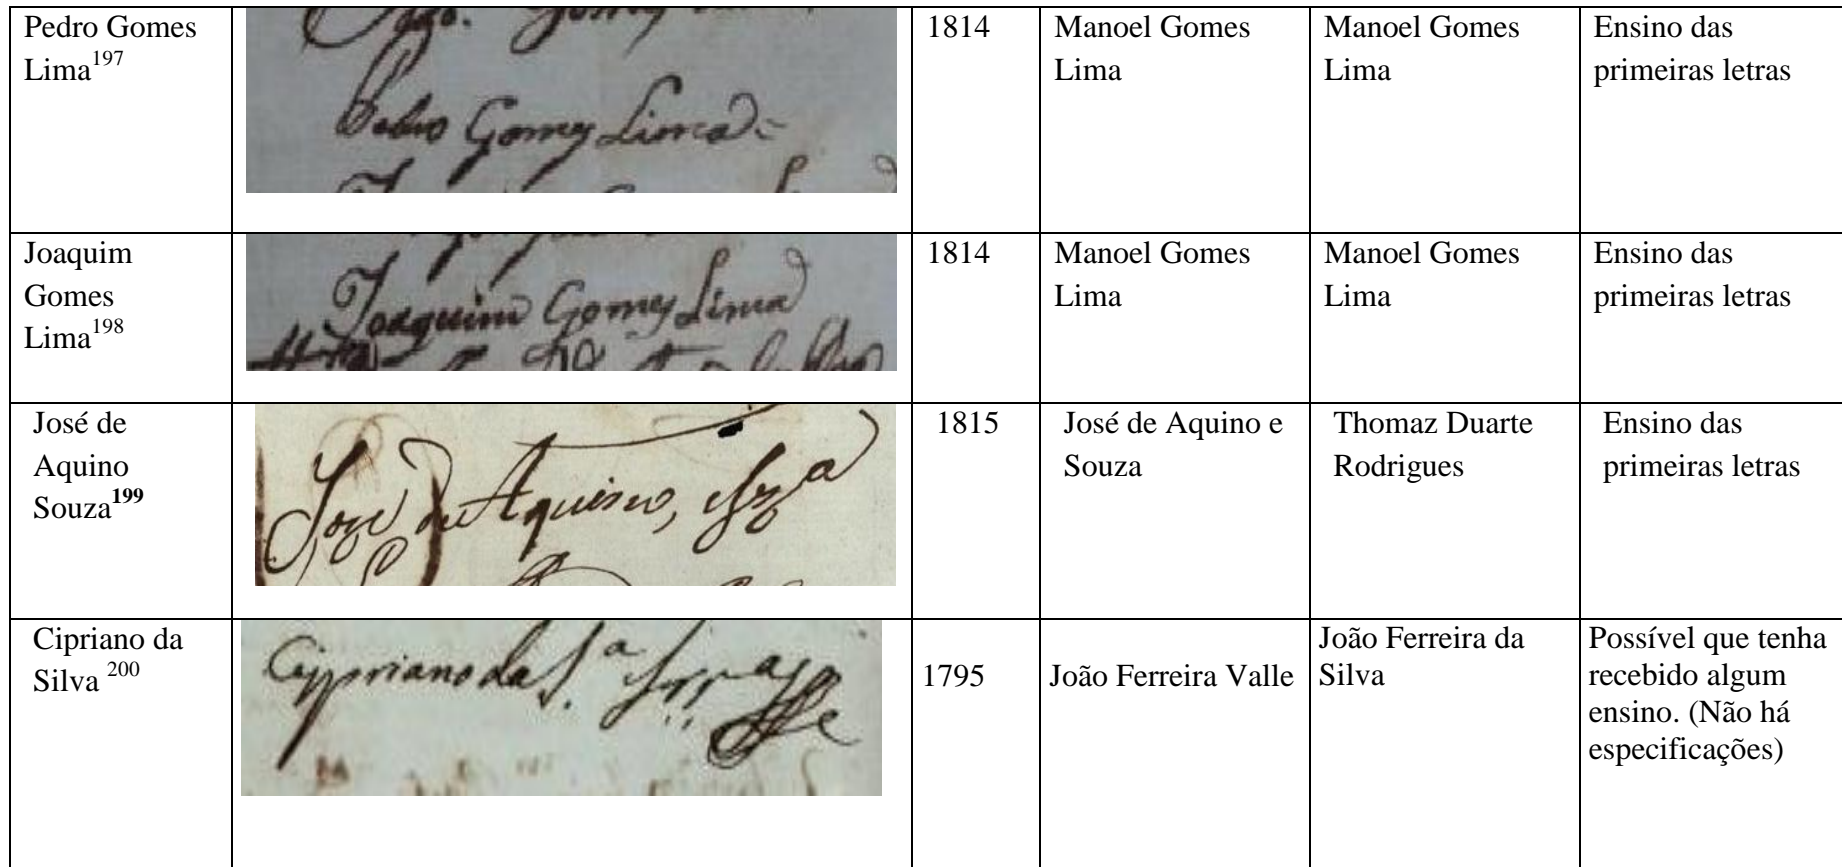 Pedro Gomes
Lima197
Pedro Gomes Lima
1814
Manoel Gomes
Lima
Manoel Gomes
Lima
Ensino das
primeiras letras
Joaquim
Gomes
Lima198
Joaquim Gomes Lima
1814
Manoel Gomes
Lima
Manoel Gomes
Lima
Ensino das
primeiras letras
José de
Aquino
Souza199
Joze de Aquino, e Sza
1815
José de Aquino e
Souza
Thomaz Duarte
Rodrigues
Ensino das
primeiras letras
Cipriano da
Silva 200
Cypriano da S.a
1795
João Ferreira Valle
João Ferreira da
Silva
Possível que tenha
recebido algum
ensino. (Não há
especificações)